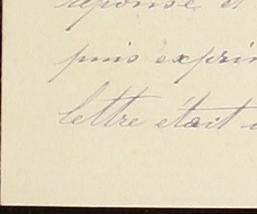 réponse et
puis exprim
lettre était